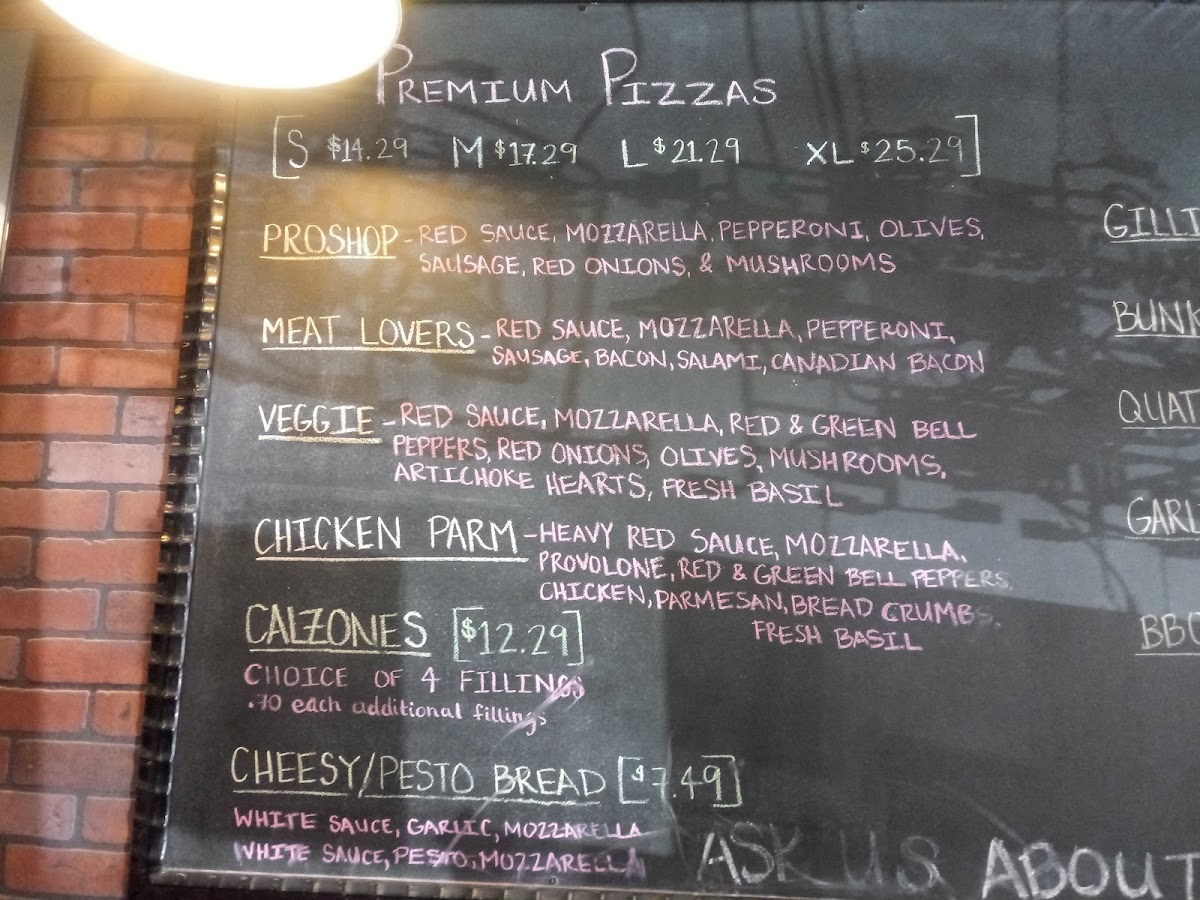 PREMIUM PIZZAS
[S $14.29 M $17.29 L $21.29 XL $25.29]
PROSHOP - RED SAUCE, MOZZARELLA, PEPPERONI, OLIVES,
SAUSAGE, RED ONIONS, & MUSHROOMS
MEAT LOVERS - RED SAUCE, MOZZARELLA, PEPPERONI,
SAUSAGE, BACON, SALAMI, CANADIAN BACON
VEGGIE - RED SAUCE, MOZZARELLA, RED & GREEN BELL
PEPPERS, RED ONIONS, OLIVES, MUSHROOMS,
ARTICHOKE HEARTS, FRESH BASIL
CHICKEN PARM - HEAVY RED SAUCE, MOZZARELLA,
PROVOLONE, RED & GREEN BELL PEPPERS,
CHICKEN, PARMESAN, BREAD CRUMBS,
FRESH BASIL
CALZONES [$12.29]
CHOICE OF 4 FILLINGS
.70 each additional fillings
CHEESY/PESTO BREAD [$7.49]
WHITE SAUCE, GARLIC, MOZZARELLA
WHITE SAUCE, PESTO, MOZZARELLA
ASK US ABOUT
GILLI
BUNK
QUAT
GARL
BBQ